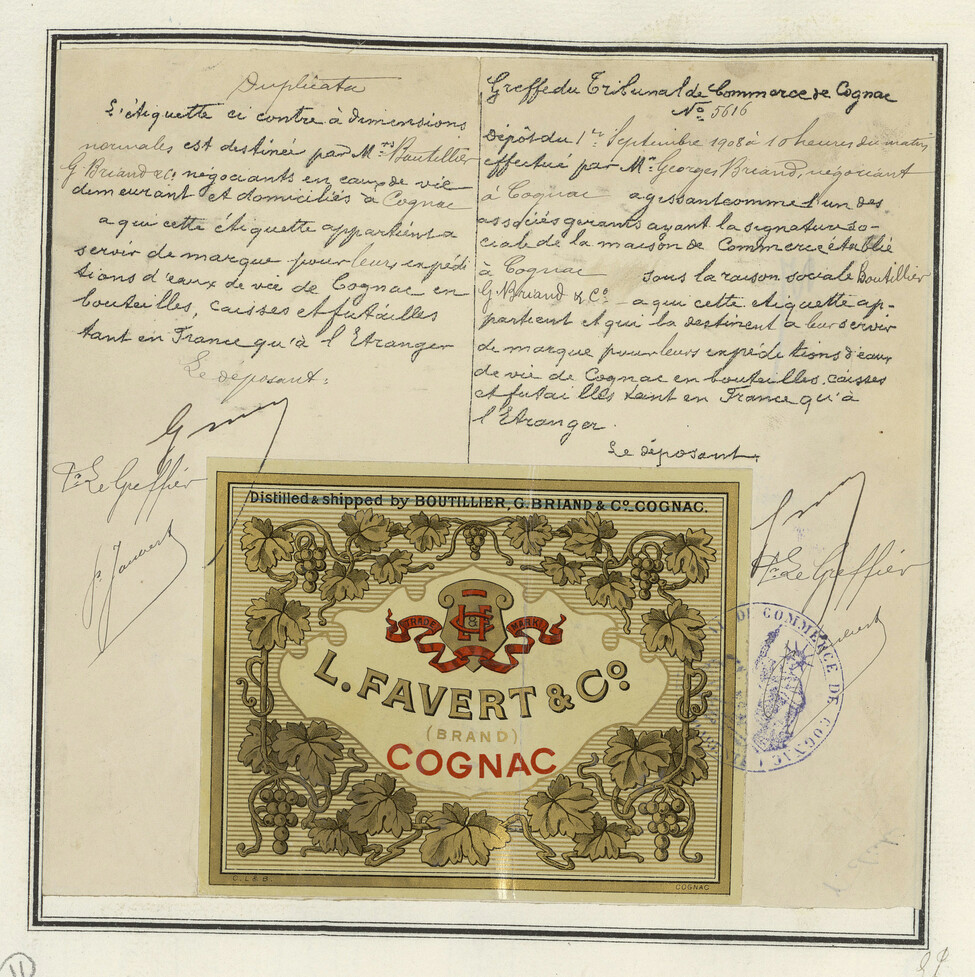 Duplicata
L'étiquette ci contre à dimensions
normales est destinée par Mrs Boutillier
G Briand & Co négociants en eaux de vie
demeurant et domiciliés à Cognac
a qui cette étiquette appartient a
servir de marque pour leurs expédi
tions d'eaux de vie de Cognac en
bouteilles, caisses et futailles
tant en France qu'à l'Etranger
Le déposant:
Pr Le Greffier
P. Jouvert
Greffe du Tribunal de Commerce de Cognac
No 5616
Dépôt du 1er Septembre 1908 à 10 heures du matin
effectué par Mr Georges Briand, négociant
à Cognac agissant comme l'un des
associés gerants ayant la signature so-
ciale de la maison de Commerce établie
à Cognac sous la raison sociale Boutillier
G. Briand & Co - a qui cette étiquette ap-
partient et qui la destinent a leur servir
de marque pour leurs expéditions d'eaux
de vie de Cognac en bouteilles, caisses
et futailles tant en France qu'à
l'Etranger.
Le déposant
Pr Le Greffier
DE COMMERCE DE COGNAC
Distilled & shipped by BOUTILLIER, G. BRIAND & Co. COGNAC.
TRADE MARK
L. FAVERT & Co
(BRAND)
COGNAC
C. L & B.
COGNAC
11